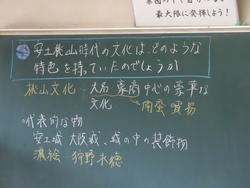 最大限に発揮しよう!
安土桃山時代の文化は、どのような
特色を持っていたのでしょうか
桃山文化 大名 豪商 中心の豪華な
文化 南蛮貿易
代表的な物
安土城 大阪城、城の中の装飾物
濃絵 狩野永徳